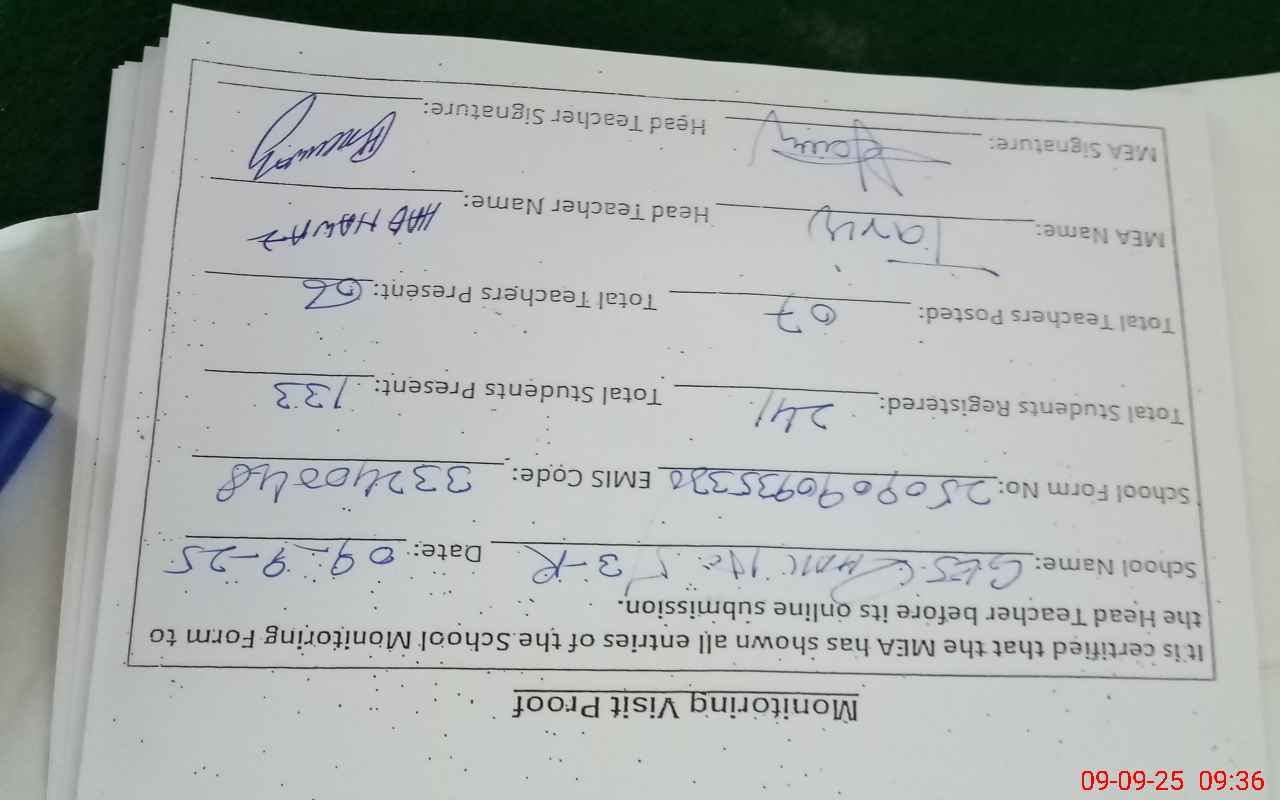 Monitoring Visit Proof
It is certified that the MEA has shown all entries of the School Monitoring Form to
the Head Teacher before its online submission.
School Name: GES No. 3-R Date: 09-9-25
School Form No: EMIS Code: 33240048
Total Students Registered: 241 Total Students Present: 133
Total Teachers Posted: 07 Total Teachers Present: 06
MEA Name: Head Teacher Name: HAQ NAWAZ
MEA Signature: Head Teacher Signature:
09-09-25 09:36